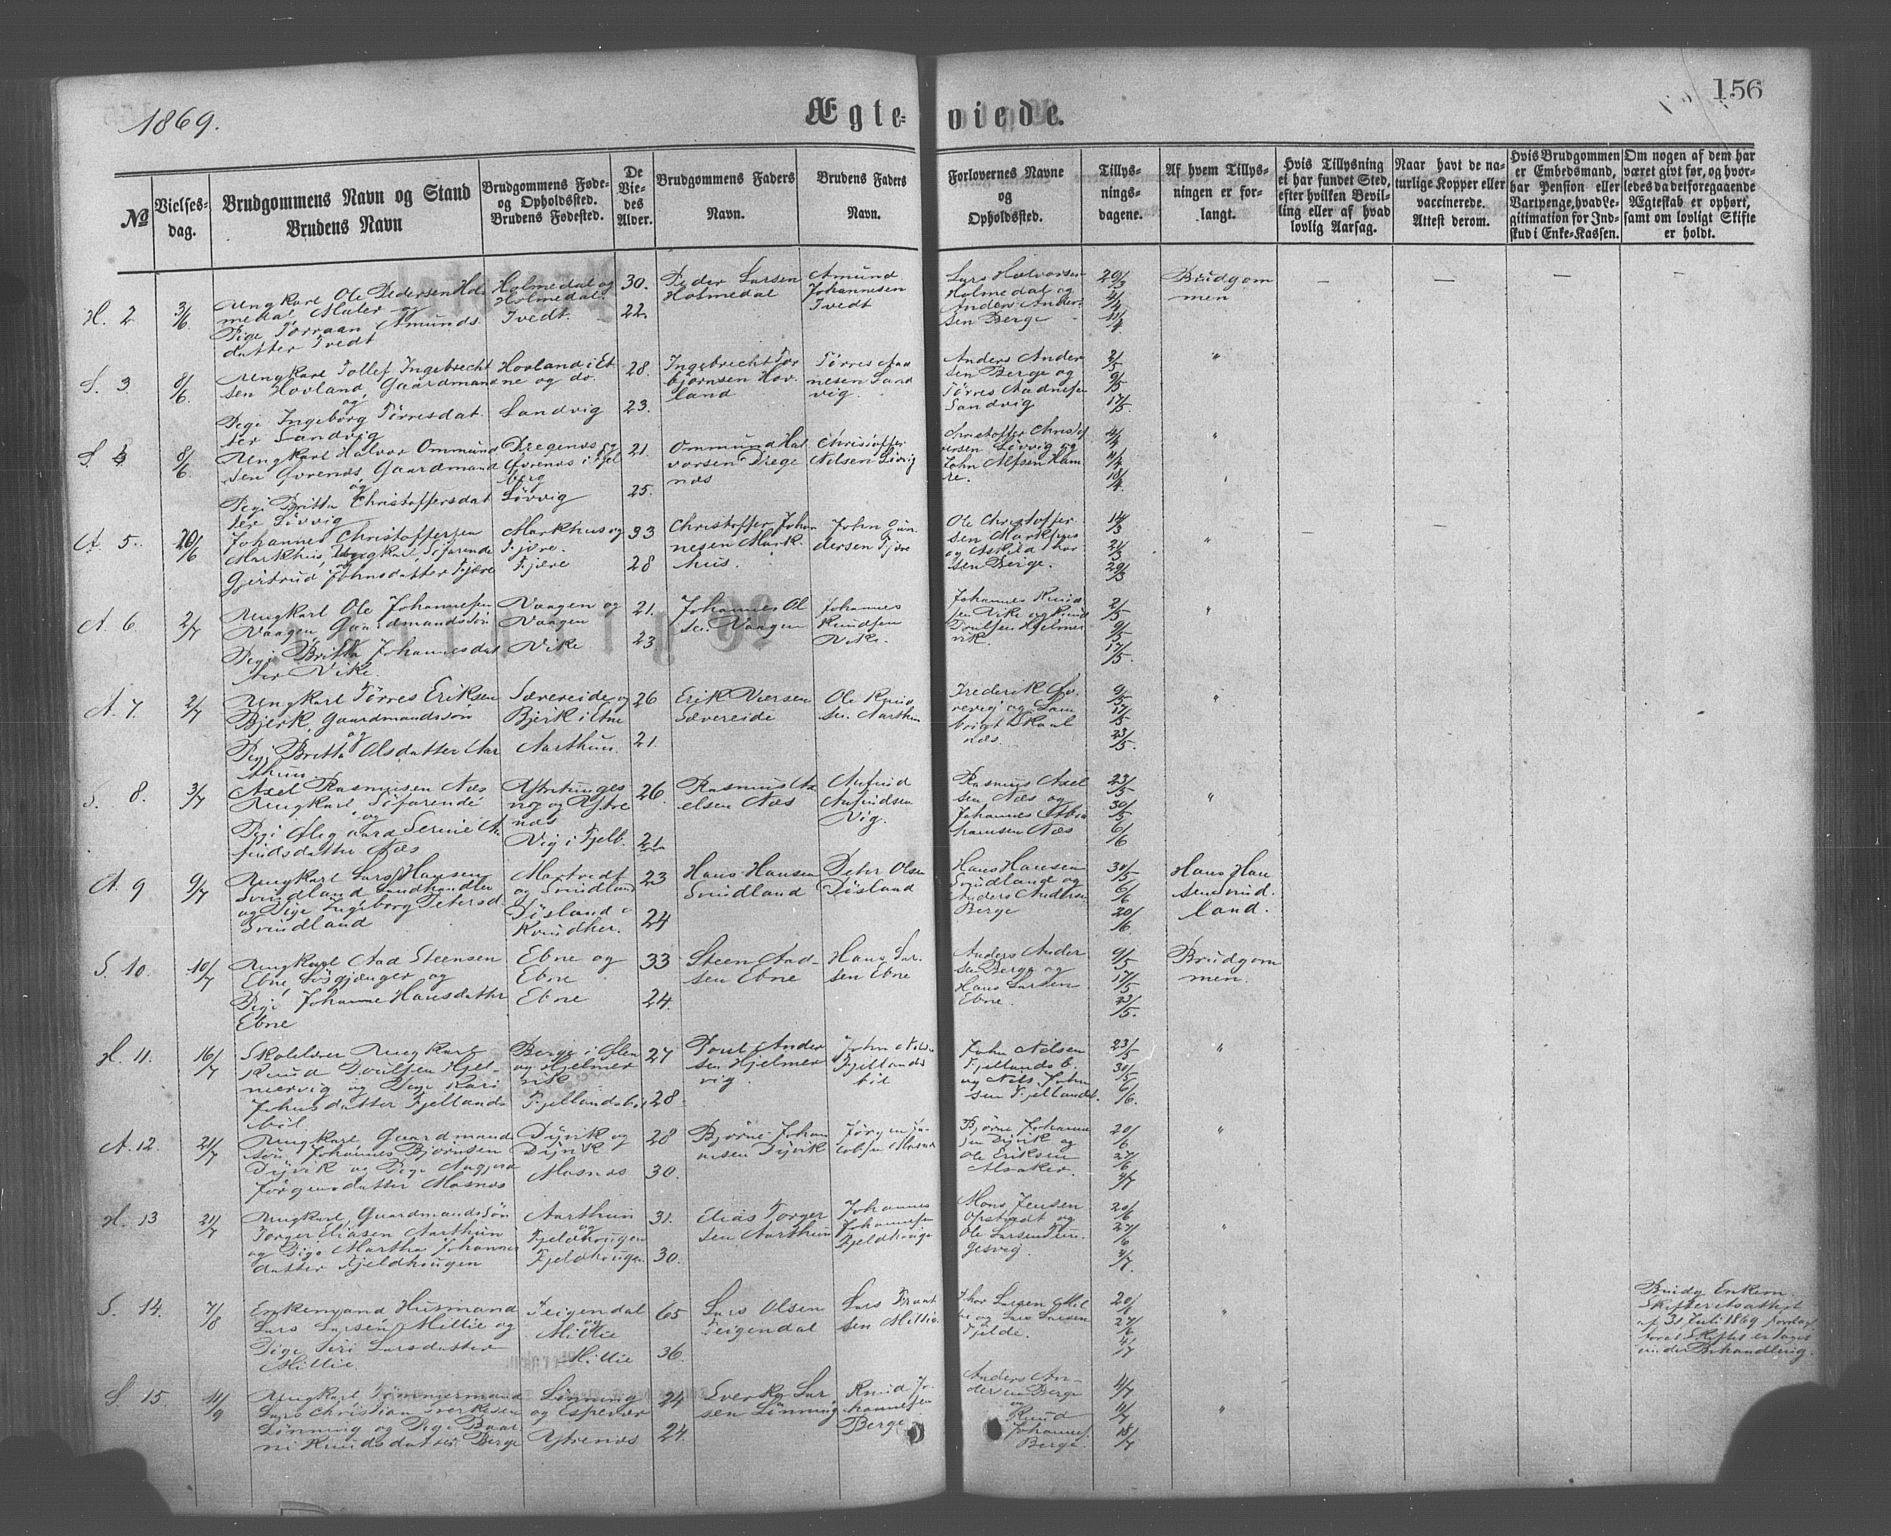 1869.
Ægte-
viede.
156
№
Vielses-
dag.
Brudgommens Navn og Stand
Brudens Navn
Brudgommens Føde-
og Opholdssted.
Brudens Fødested.
De
Vie-
des
Alder.
Brudgommens Faders
Navn.
Brudens Faders
Navn.
Forlovernes Navne
og
Opholdssted.
Tillys-
nings-
dagene.
Af hvem Tillys-
ningen er for-
langt.
Hvis Tillysning
ei har fundet Sted,
efter hvilken Bevil-
ling eller af hvad
lovlig Aarsag.
Naar havt de na-
turlige Kopper eller
vaccinerede.
Attest derom.
Hvis Brudgommen
er Embedsmand,
har Pension eller
Vartpenge, hvad Le-
gitimation for Ind-
skud i Enke-Kassen.
Om nogen af dem har
været givt før, og hvor-
ledes da det foregaaende
Ægteskab er ophørt,
samt om lovligt Skifte
er holdt.
H. 2
3/6
Ungkarl Ole Pedersen Hol-
medal Maler og
Pige Torraan Amunds
datter Tvedt
Holmedal og
Holmedal.
Tvedt.
30.
22.
Peder Larsen
Holmedal
Amund
Johannesen
Tvedt
Lars Halvorsen
Holmedal og
Anders Ander-
sen Berge
29/3
4/4
11/4
Brudgom
men
S. 3
8/6
Ungkarl Tollef Ingebrecht
sen Hovland, Gaardmand
og
Pige Ingeborg Tørresdat
ter Sandvig
Hovland i Et
ne og do.
Sandvig
28.
23.
Ingebrecht Tor
bjørnsen Hov-
land
Tørres Aad
nesen Sand
vig.
Anders Ander
sen Berge og
Tørres Aadnesen
Sandvig
2/5
9/5
17/5
"
S. 4
8/6
Ungkarl Halvor Ommund
sen Øvrenæs Gaardmand
og
Pige Britta Christoffersdat
ter Løvvig
Dregenæs og
Øvrenæs i Fjel
berg
Løvvig
21.
25.
Ommund Hal
vorsen Drege
næs
Christoffer
Nilsen Løvvig
Christoffer Christof
fersen Løvvig og
John Alfsen Ham
re.
4/4
11/4
18/4
"
A. 5.
20/6
Johannes Christoffersen
Markhus, Ungkarl, Søfarende
og
Gjertrud Johnsdatter Fjære
Markhus og
Fjære.
Fjære
33
28
Christoffer Johan
nesen Mark-
hus.
John Gun
dersen Fjære
Ole Christoffer-
sen Markhus
og Askild Thor
sen Berge.
14/3
21/3
29/3
"
A. 6.
2/7
Ungkarl Ole Johannesen
Vaagen, Gaardmandssøn
og
Pige Britta Johannesdat
ter Vike.
Vaagen og
Vaagen
Vike
21.
23
Johannes Ol
sen Vaagen
Johannes
Knudsen
Vike.
Johannes Knud
sen Vike og Knud
Poulsen Hjelmer
vik.
2/5
9/5
17/5.
"
A. 7.
2/7
Ungkarl Tørres Eriksen
Bjerk, Gaardmandssøn
og
Pige Britta Olsdatter Aar
thun
Sævereide og
Bjerk i Etne
Aarthun.
26
21.
Erik Viersen
Sævereide
Ole Knud
sen Aarthun
Frederik
og Lam
brigt Skaal
næs.
9/5
17/5
23/5.
"
S. 8.
3/7
Axel Rasmusen Næs
Ungkarl, Søfarende
og
findsdatter Næs
Vig i Fjelb.
26.
21
Rasmus Ax
elsen Næs
Anfind
Anfindsen
Vig.
Rasmus Axel
sen Næs og
Johannes Abra
hamsen Næs
23/5
30/5
6/6
"
A. 9
9/7
Ungkarl Lars Hansen
Svindland Landhandler
og Pige Ingeborg Petersd
Svindland
og Svindland
Tøsland i
Kvindher.
23
24
Hans Hansen
Svindland
Pehr Olsen
Tøsland
Hans Hansen
Svindland og
Anders Andersen
Berge
30/5
6/6
20/6.
Hans Han
sen Svind
land.
S. 10.
10/7
Ungkarl Aad Steensen
Ebne Løsgjænger og
Pige Johanne Hansdatter
Ebne
Ebne og
Ebne
Ebne
33
24.
Steen Aad-
sen Ebne
Hans Lar-
sen Ebne
Anders Ander
sen Berge og
Hans Larsen
Ebne.
9/5
17/5
23/5.
Brudgom
men.
H. 11.
16/7
Skolelærer Ungkarl
Knud Poulsen Hjel-
mervig og Pige Kari
Johnsdatter Fjellands
bøl
Berge i Ølen
og Hjelmer
vik
Fjellandsbøl
27
28
Poul Ander
sen Hjelmer
vig.
John Nils.
Fjellands
bøl
John Nilsen
Fjellandsb.
og Nils John
sen Fjellandsb.
23/5
30/5
6/6.
"
A. 12.
21/7
Ungkarl, Gaardmands
søn, Johannes Bjørnsen
Dyvik og Pige Angjerd
Jørgensdatter Masnæs
Dyvik og
Dyvik
Masnæs
28
30.
Bjørne Johan
nesen Dyvik
Jørgen Ja-
cobsen Masnæs
Bjørne Johanne
sen Dyvik og
Ole Eriksen
Alsaker.
20/6
27/6
4/7
"
H. 13
21/7
Ungkarl, Gaardmandssøn
Torger Eliasen Aarthun
og Pige Martha Johannes
datter Fjeldhougen
Aarthun
og
Fjeldhougen
Fjeldhougen.
31.
30.
Elias Torger
sen Aarthun
Johannes
Johannesen
Fjeldhouge
Mons Jensen
Opstvedt og
Ole Larsen Tun-
gesvig.
20/6
27/6
4/7.
"
S. 14.
7/8
Enkemand Husmand
Lars Larsen Millie og
Pige Siri Larsdatter
Millie.
Teigendal
og
Millie
Millie
65
36.
Lars Olsen
Teigendal
Lars Knut
sen Millie
Thor Larsen Mil-
lie og Lars Larsen
Fjelde.
20/6
27/6
4/7
"
Brudg. Enkem.
Skifteretsattest
af 31 Juli 1869 fordag
forat Skiftet er taget
under Behandling.
S. 15.
11/9
Ungkarl Tømmermand
Lars Christian Sverkesen
Lønning og Pige Baar
ni Knudsdatter Berge
Lønning
og Espevær
Ytrenæs
24
24.
Sverke Lar
sen Lønning
Knud Jo-
hannesen
Berge
Anders An-
dersen Berge
og
Knud
Johannes.
Berge.
4/7
11/7
18/7
"